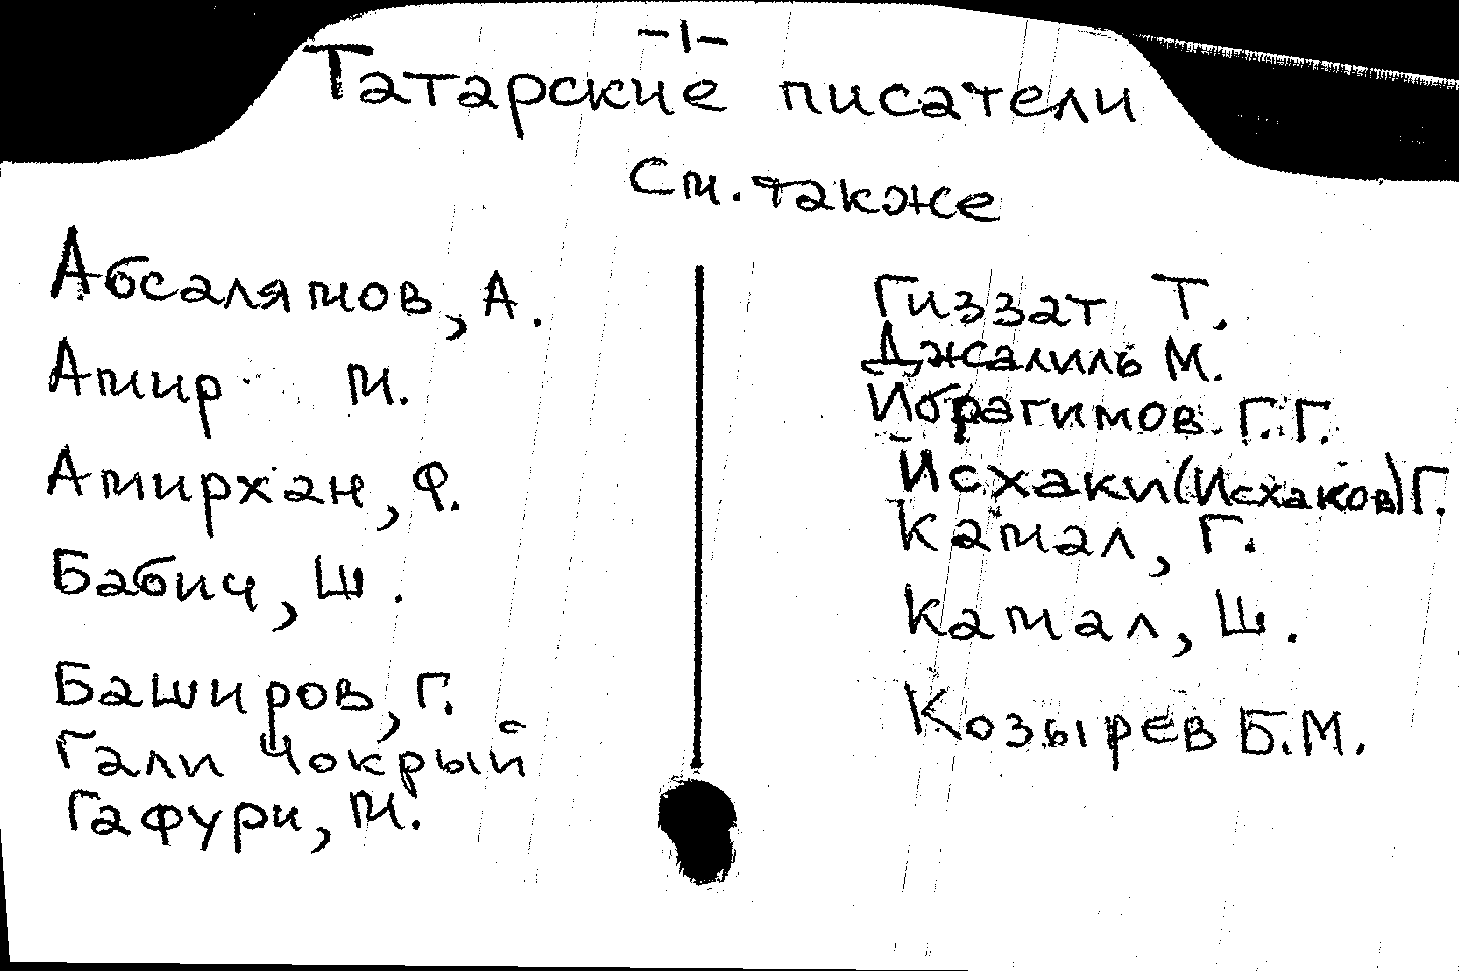 -1-
Татарские писатели
См. также
Абсалямов, А.
Амир М.
Амирхан, Ф.
Бабич, Ш.
Баширов, Г.
Гали Чокрый
Гафури, М.
Гиззат Т.
Джалиль М.
Ибрагимов Г.Г.
Исхаки (Исхаков) Г.
Камал, Г.
Камал, Ш.
Козырев Б.М.